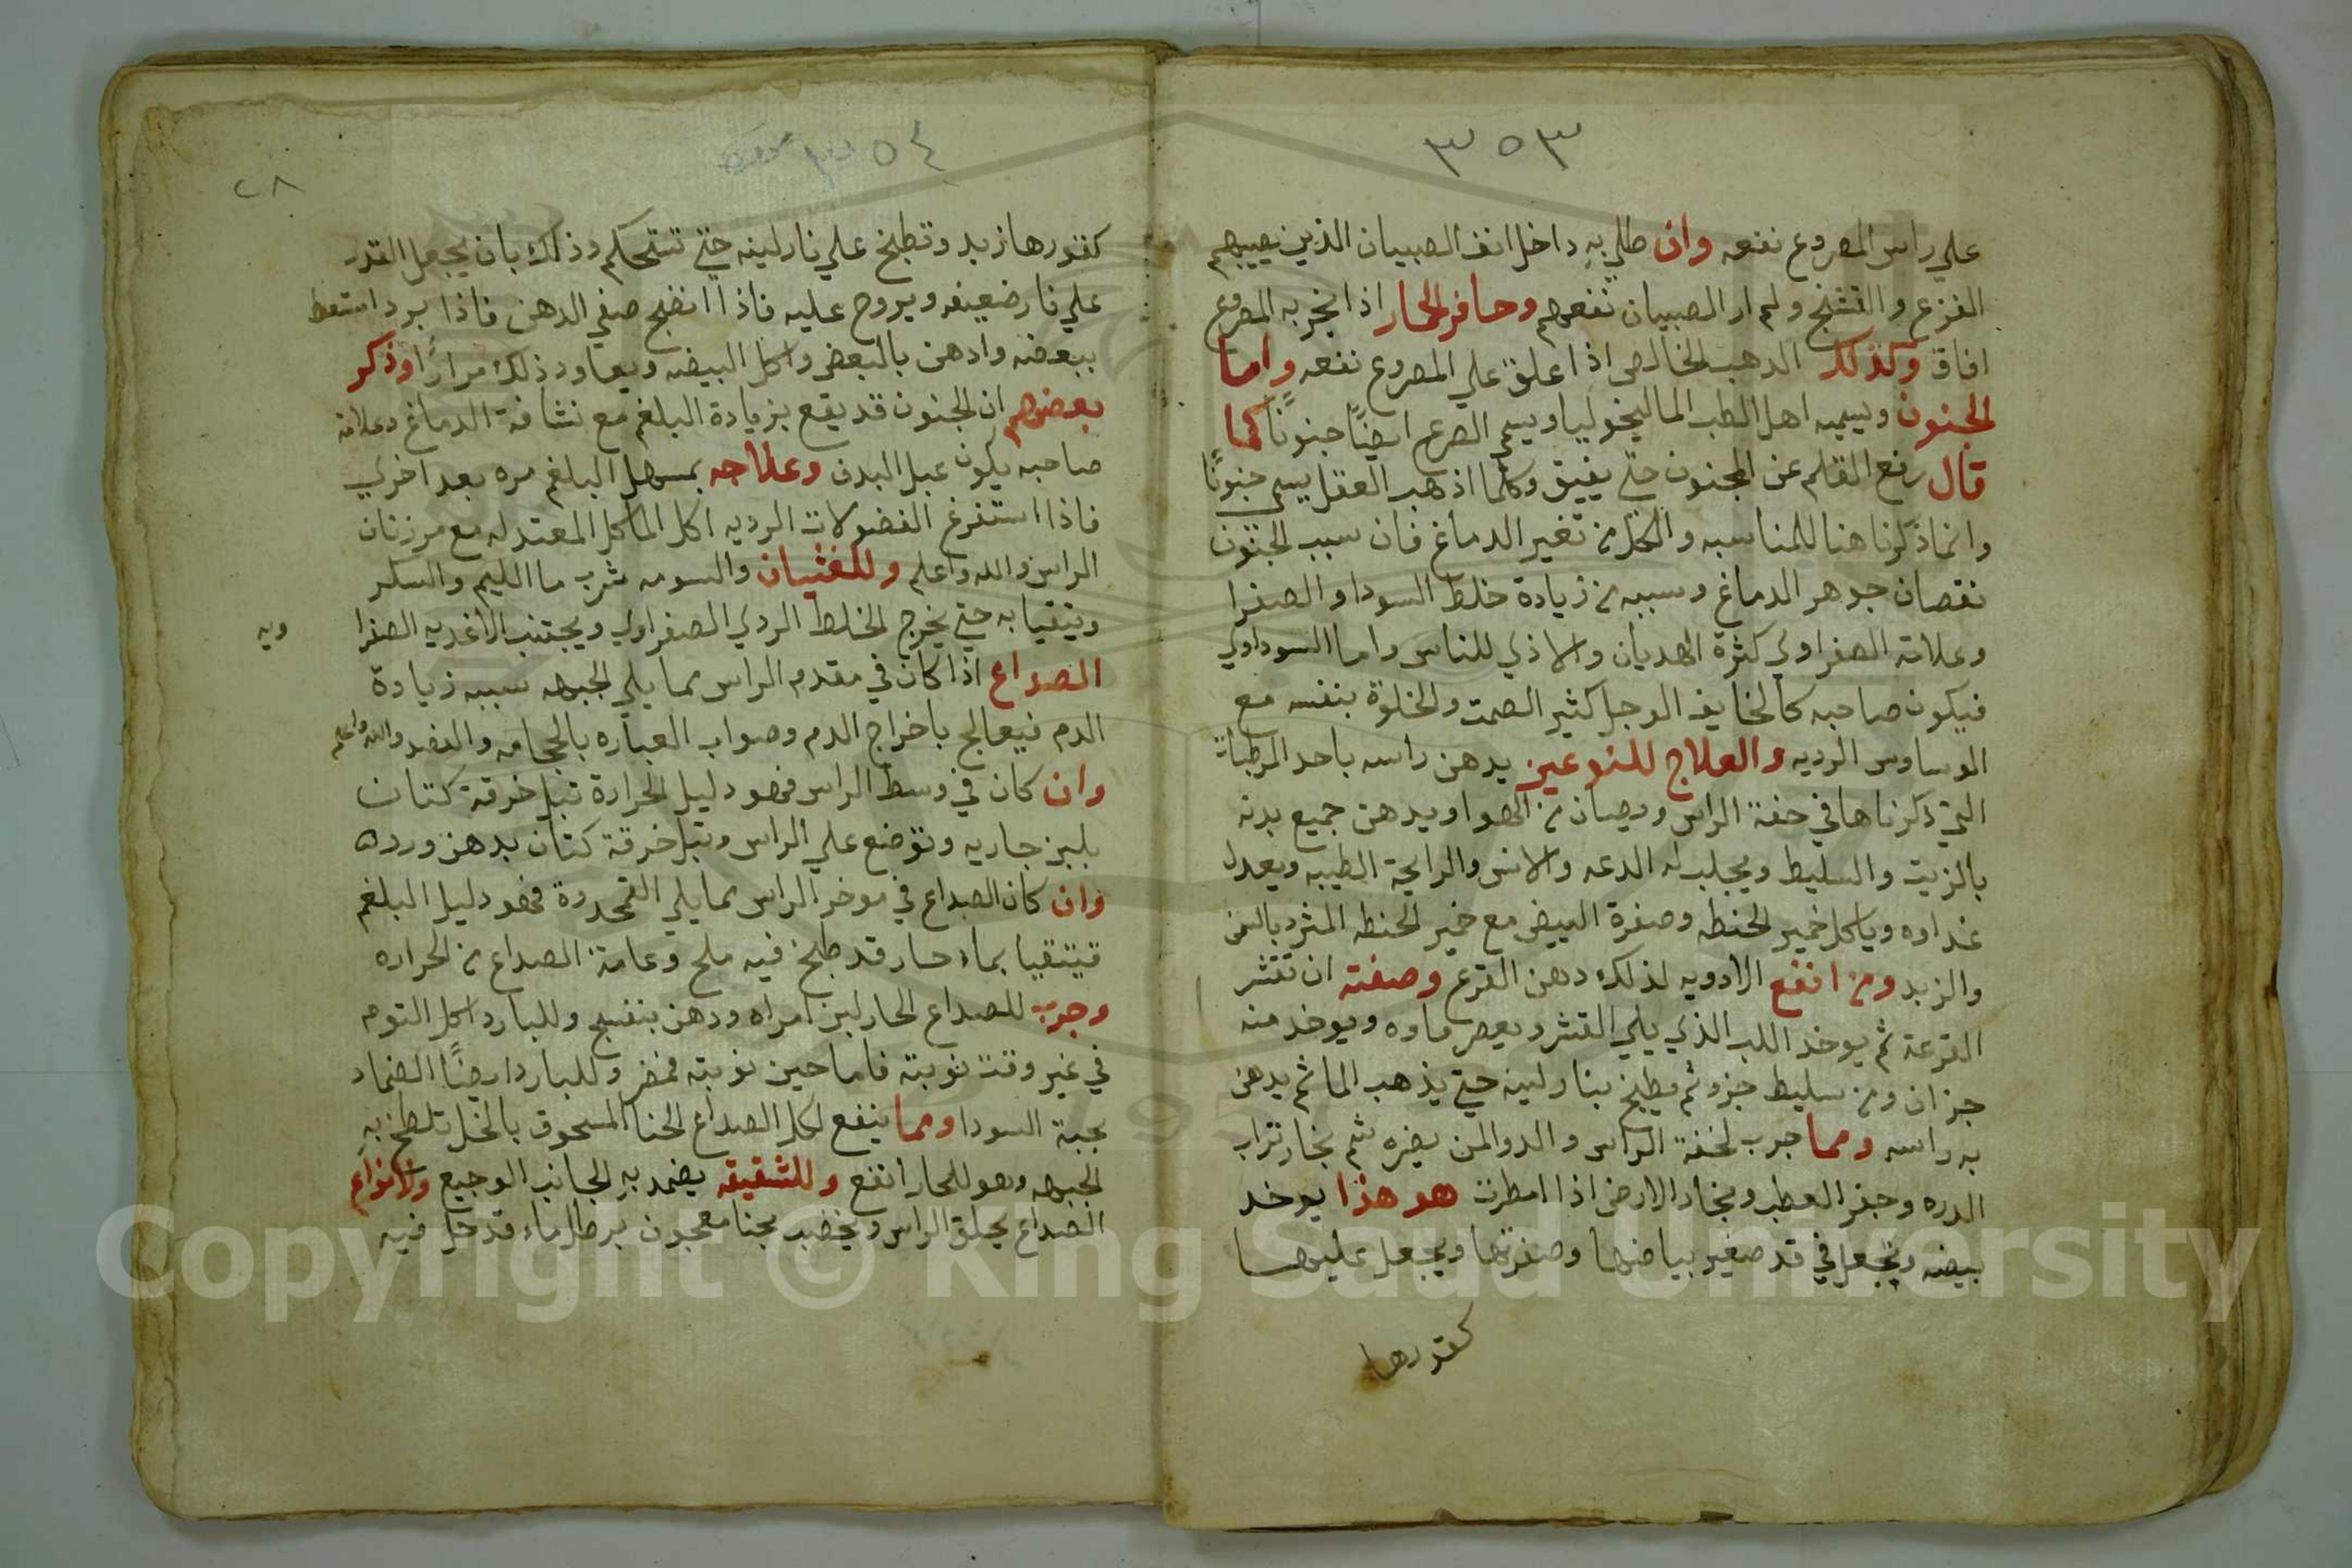 ٣٥٣
علي راس المصروع نفعه وان طلي به داخل انف الصبيان الذين يصيبهم
الفزع والتشنج ولم ار الصبيان نفعهم وحافر الحمار اذا بخر به المصروع
افاق وكذلك الدهب الخالص اذا اعلق علي المصروع نفعه واما
الجنون ويسميه اهل الطب الماليخوليا ويسمي الصرع ايضًا جنونًا كما
قال رفع القلم عن المجنون حتي يفيق وكلما اذهب العقل يسمي جنونًا
وانما ذكرنا هنا للمناسبه والكل من تغير الدماغ فان سبب الجنون
نقصان جوهر الدماغ وسببه من زيادة خلط السودا والصفرا
وعلامة الصفراوي كثرة الهديان والاذي للناس واما السوداوي
فيكون صاحبه كالخايف الوجل كثير الصمت والخلوة بنفسه مع
الوساوس الرديه والعلاج للنوعين يدهن راسه باحد المرطبات
التي ذكرناها في خفة الراس ويصان من الهوا ويدهن جميع بدنه
بالزيت والسليط ويجلب له الدعه والانس والرايحة الطيبه ويعدل
غداوه وياكل خمير الحنطه وصفرة البيض مع خمير الحنطه المثرد بالسمن
والزبد ومن انفع الادويه لذلك دهن القرع وصفته ان تقشر
القرعة ثم يوخد اللب الذي يلي القشر ويعصر ماوه ويوخد منه
جزان ومن سليط جزو ثم يطبخ بنار لينه حتي يذهب الما ثم يدهن
به راسه ومما جرب لخفة الراس والدوا لمن يضره شم بخار تراب
الدره وجفر العطب وبخار الارض اذا امطرت هو هذا يوخد
بيضه وتجعل في قد صغير بياضها وصفرتها ويجعل عليها
كقدرها
٣٥٤
٢٨
كقدرها زبد وتطبخ علي نار لينه حتي تستحكم وذلك بان يجعل القدر
علي نار ضعيفه ويروح عليه فاذا انضج صفي الدهن فاذا برد استعط
ببعضه وادهن بالبعض واكل البيضه ويعاود ذلك مرارًا وذكر
بعضهم ان الجنون قد يقع بزيادة البلغم مع نشافة الدماغ وعلامة
صاحبه يكون عبل البدن وعلاجه بمسهل البلغم مره بعد اخري
فاذا استفرغ الفضولات الرديه اكل الماكل المعتدله مع مرزنان
الراس والله واعلم وللغثيان والسومه شرب ما الليم والسكر
ويتقيا به حتي يخرج الخلط الردي الصفراوي ويجتنب الاغديه الصفرا
ويه
الصداع اذا كان في مقدم الراس مما يلي الجبهه سببه زيادة
الدم فيعالج باخراج الدم وصواب العباره بالحجامه والفصد والله واعلم
وان كان في وسط الراس فهو دليل الحرارة تبل خرقة كتان
بلبن جاريه وتوضع علي الراس وتبل خرقة كتان بدهن ورد
وان كان الصداع في موخر الراس مما يلي القمحدوة فهو دليل البلغم
فيتقيا بماء حار قد طبخ فيه ملح وعامة الصداع من الحراره
وجرب للصداع الحار لبن امراه ودهن بنفسج وللبارد اكل التوم
في غير وقت نوبته فاما حين نوبته فمضر وللبارد ايضًا الضماد
بحبة السودا ومما ينفع لكل الصداع الحنا المسحوق بالخل تلطخ به
الجبهه وهو للحار انفع وللشقيقه يضمد به الجانب الوجيع ولانواع
الصداع يحلق الراس ويخضب بحنا معجون برطل ماء قد حل فيه
Copyright © King Saud University